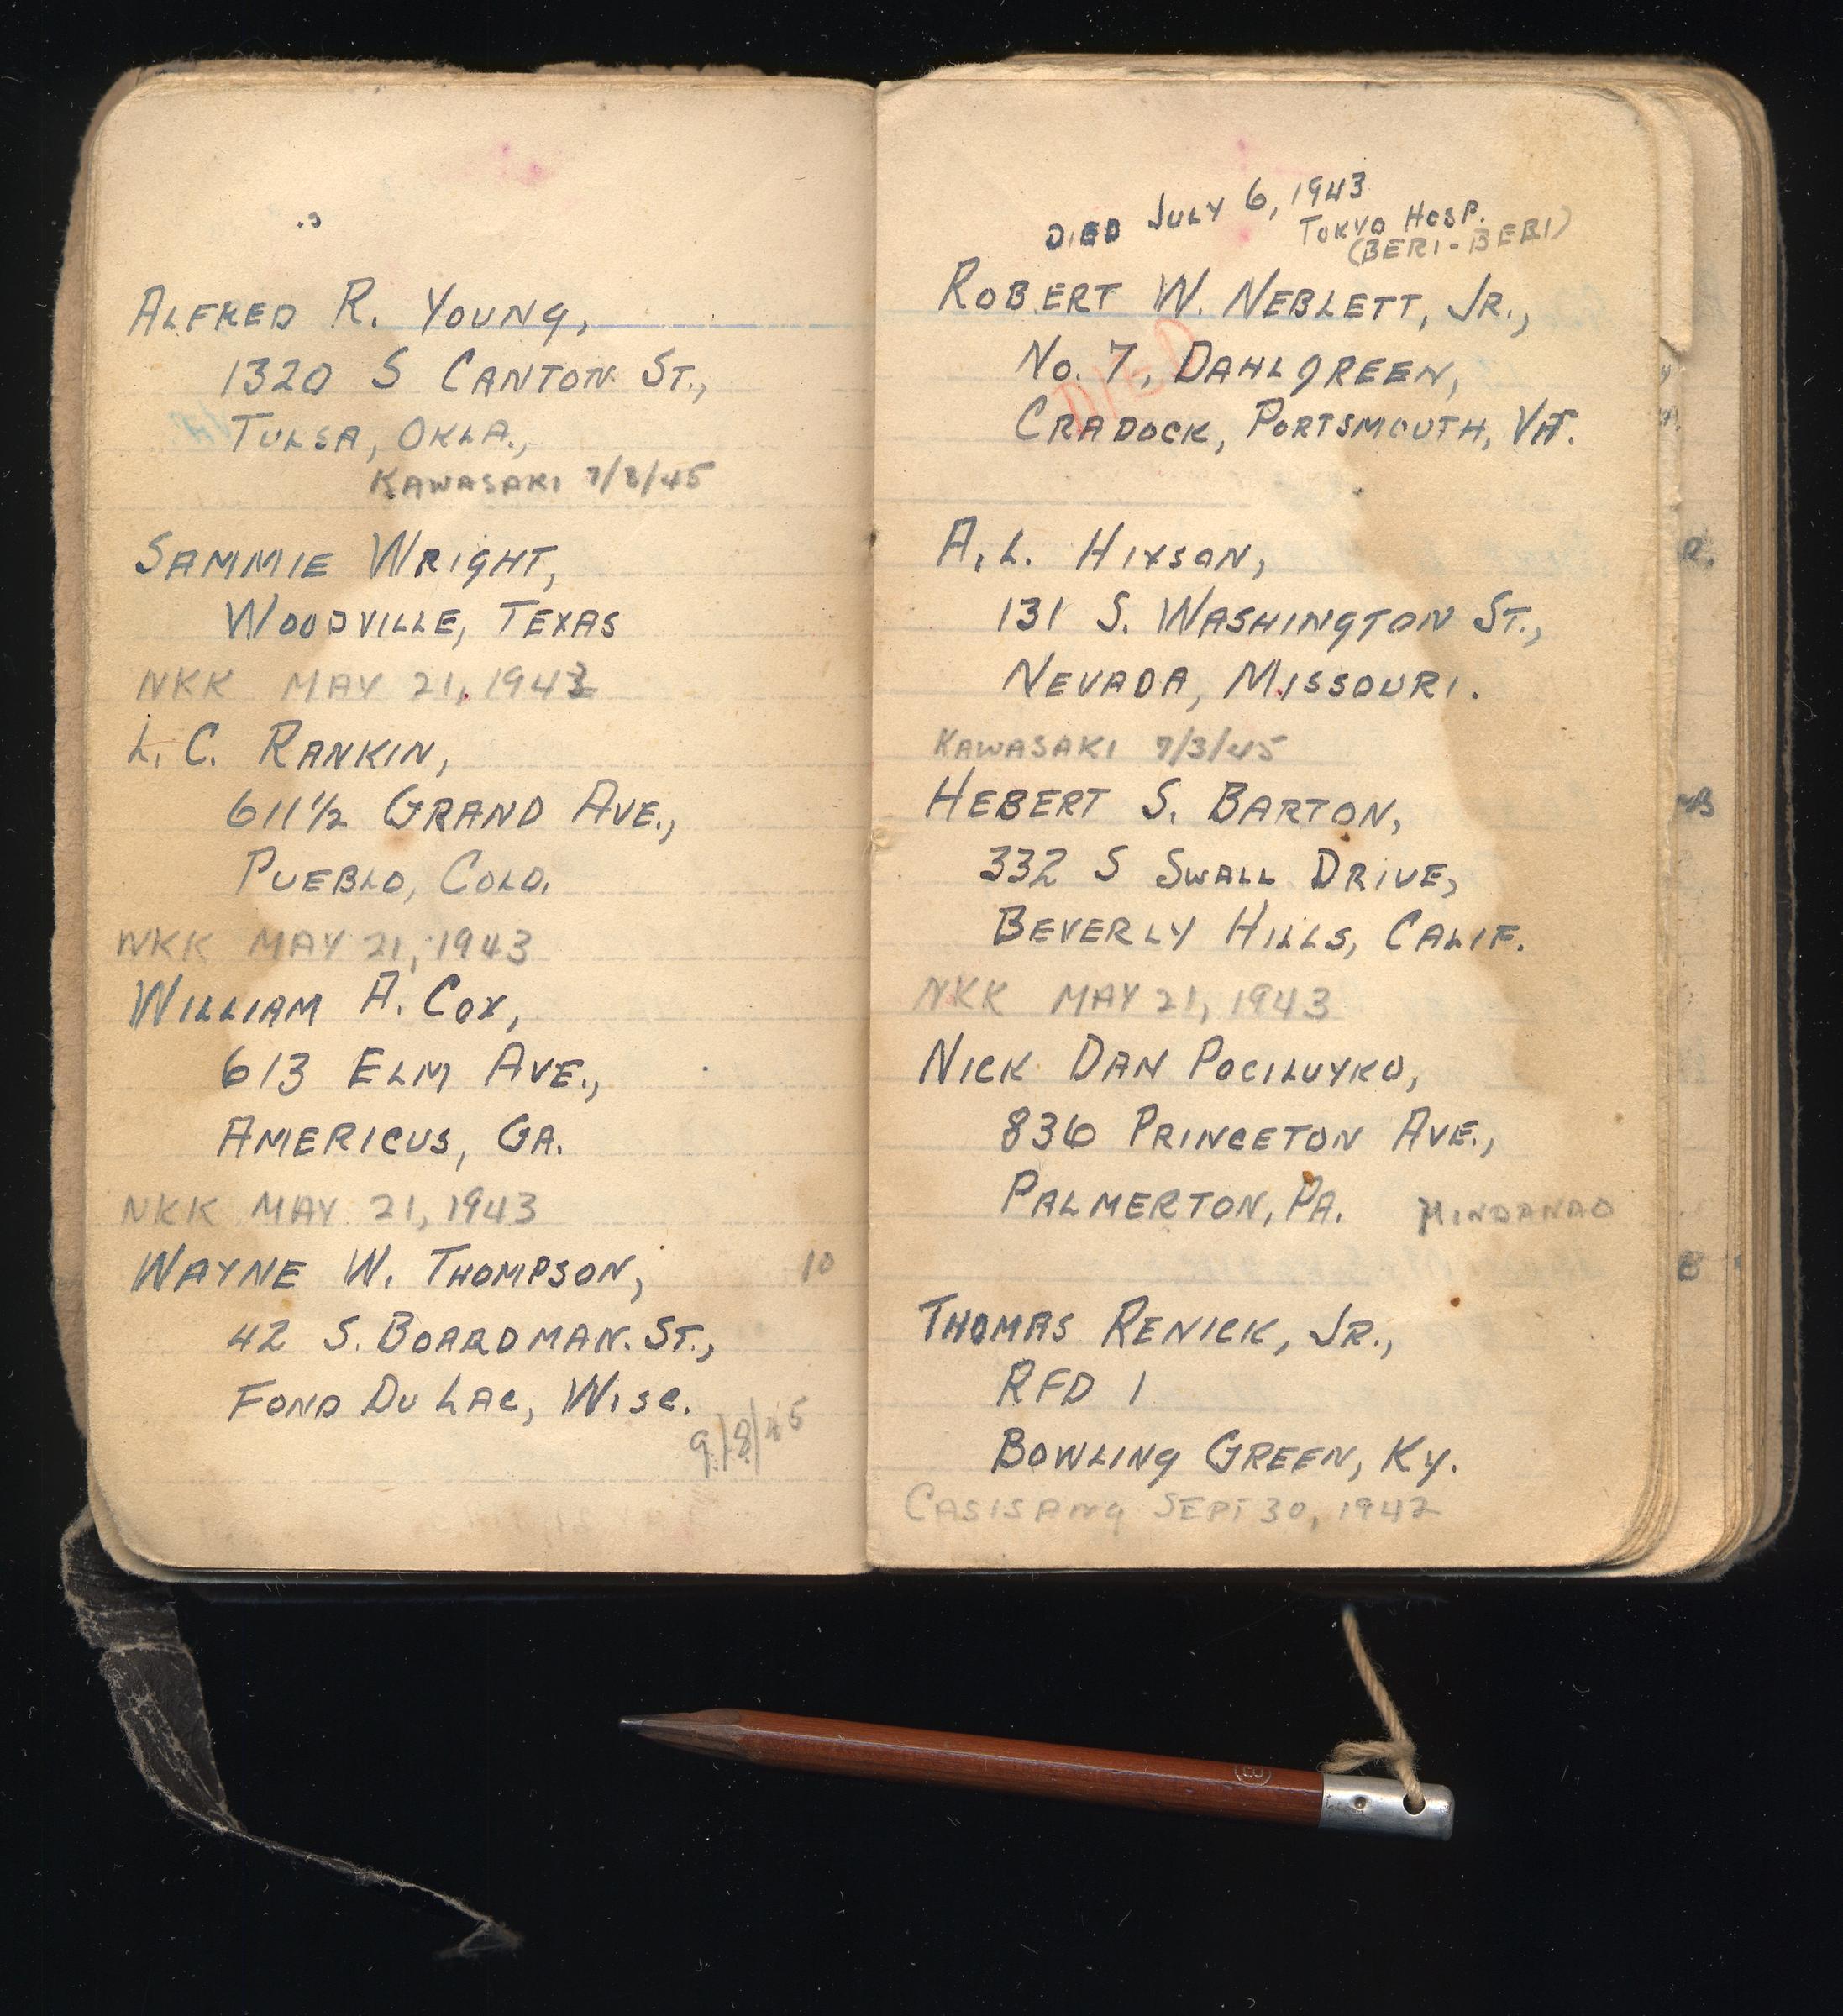 ALFRED R. YOUNG,
1320 S CANTON ST.,
TULSA, OKLA.,
KAWASAKI 7/3/45
SAMMIE WRIGHT,
WOODVILLE, TEXAS
NKK MAY 21, 1943
L. C. RANKIN,
611½ GRAND AVE.,
PUEBLO, COLO.
NKK MAY 21, 1943
WILLIAM A. COX,
613 ELM AVE.,
AMERICUS, GA.
NKK MAY 21, 1943
WAYNE W. THOMPSON, 10
42 S. BOARDMAN. ST.,
FOND DU LAC, WISC.
9/8/45
DIED JULY 6, 1943
TOKYO HOSP.
(BERI-BERI)
ROBERT W. NEBLETT, JR.,
DIED
No. 7, DAHLGREEN,
CRADOCK, PORTSMOUTH, VA.
A. L. HIXSON,
131 S. WASHINGTON ST.,
NEVADA, MISSOURI.
KAWASAKI 7/3/45
HEBERT S. BARTON,
332 S SWALL DRIVE,
BEVERLY HILLS, CALIF.
NKK MAY 21, 1943
NICK DAN POCILUYKO,
836 PRINCETON AVE.,
PALMERTON, PA. MINDANAO
THOMAS RENICK, JR.,
RFD 1
BOWLING GREEN, KY.
CASISANG SEPT 30, 1942